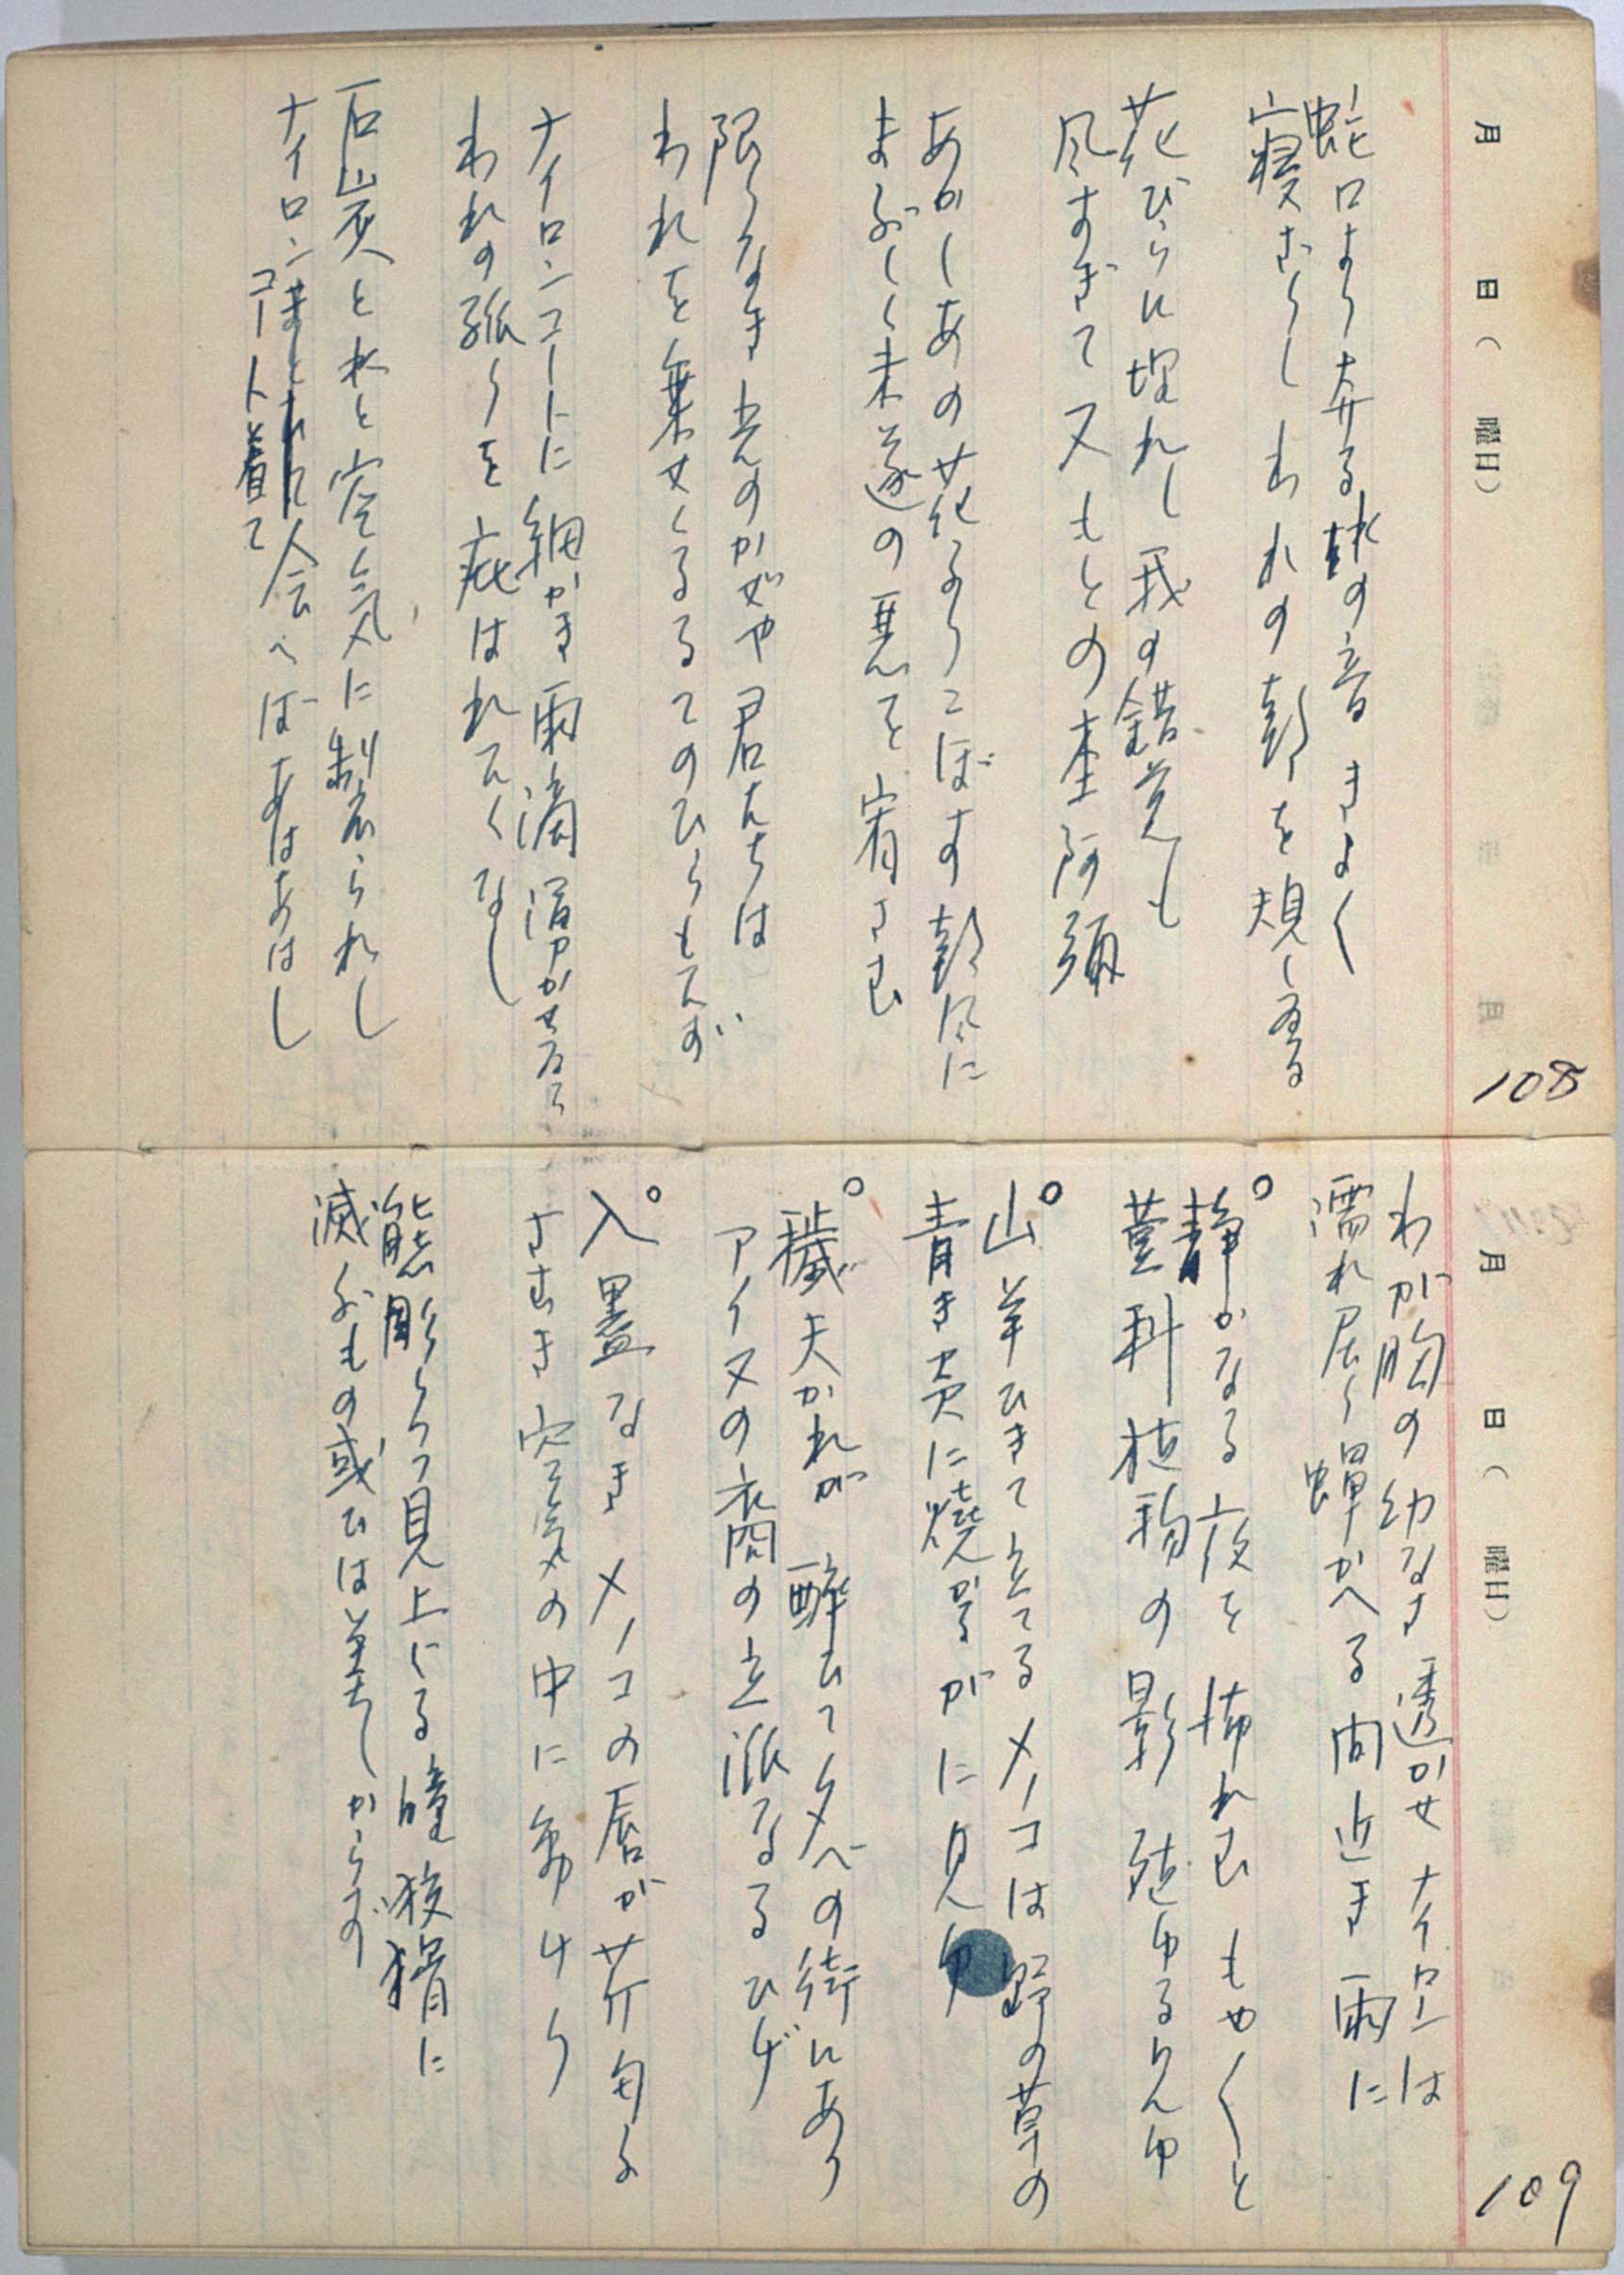 月 日( 曜日)
108
蛇口より奔る水の音きよく
寝おくれしわれの影を規しゐる
花びらに埋れし我の錯覚も
風すぎて又もとの奎阿彌
あかしあの花ふりこぼす朝風に
まぶしく未遂の悪を宥さむ
限りなき光のかぜや君たちは
われを棄せくるるてのひらもたず
ナイロンコートに細かき雨滴溜めかせゐる
われの孤りを疵はれたくなし
石炭と水と空気に制られし
ナイロン会へばあはあはし
コート着て
月 日( 曜日)
109
わが胸の幼なさ透かせナイロンは
濡れ居り蝉かへる間近き雨に
。静かなる夜を怖れむもやくと
荳科植物の影殖ゆるゆ
。山羊ひきて立てるメノコは野の草の
青き炎に燒かるがに見ゆ
。穢夫かれが醉ひて夕べの街にあり
アイヌの裔の立派なるひげ
。入墨なきメノコの唇が芹匂ふ
さむき空気の中に動けり
熊彫りつつ見上ぐる瞳狡猾に
滅ぶもの或ひは美しからず